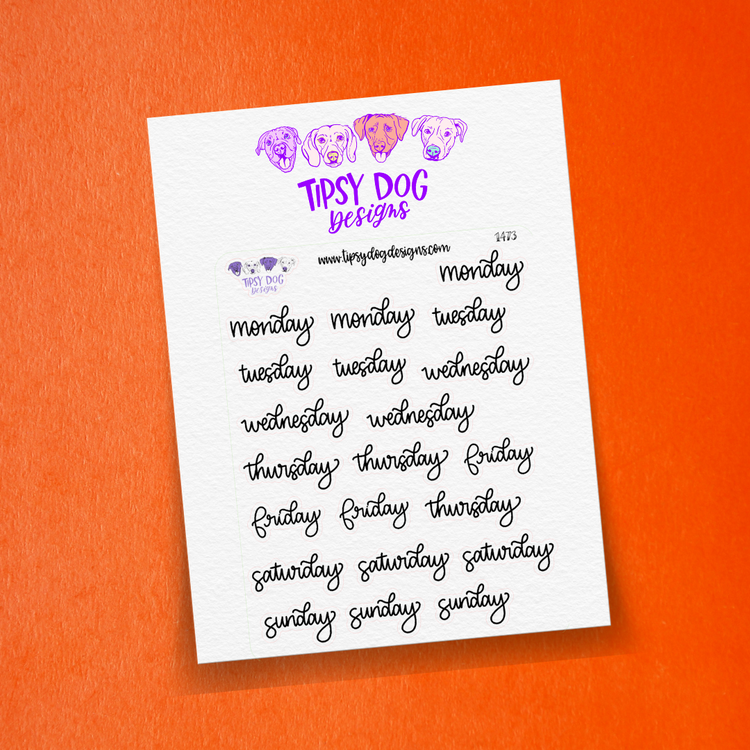 TIPSY DOG
Designs
1473
www.tipsydogdesigns.com
TIPSY DOG
Designs
monday
monday monday tuesday
tuesday tuesday wednesday
wednesday wednesday
thursday thursday friday
friday friday thursday
saturday saturday saturday
sunday sunday sunday